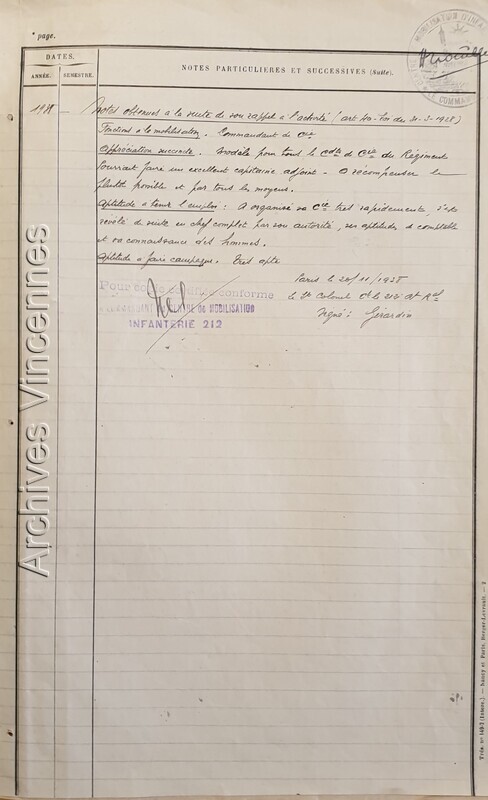 e page.
DATES.
ANNÉE.
SEMESTRE.
NOTES PARTICULIÈRES ET SUCCESSIVES (Suite).
MOBILISATION D'INFAN
COMMA
1938 — Notes obtenues à la suite de son rappel à l'activité (art 40 - Loi du 31-3-1928)
Fonctions à la mobilisation. Commandant de Cie
Appréciation succincte. Modèle pour tous les Cdts de Cies du Régiment
Pourrait faire un excellent capitaine adjoint - à récompenser le
plutôt possible et par tous les moyens.
Aptitude à tenir l'emploi : A organisé sa Cie très rapidement, s'est
révélé de suite un chef complet par son autorité, ses aptitudes de comptable
et sa connaissance des hommes.
Aptitude à faire campagne. Très apte
Paris le 20/11/1938
le Lt Colonel Ct le 212e
Signé : Girardin
Pour copie certifiée conforme
LE COMMANDANT CENTRE de MOBILISATION
INFANTERIE 212
Archives Vincennes
Nancy et Paris, Berger-Levrault. — 2